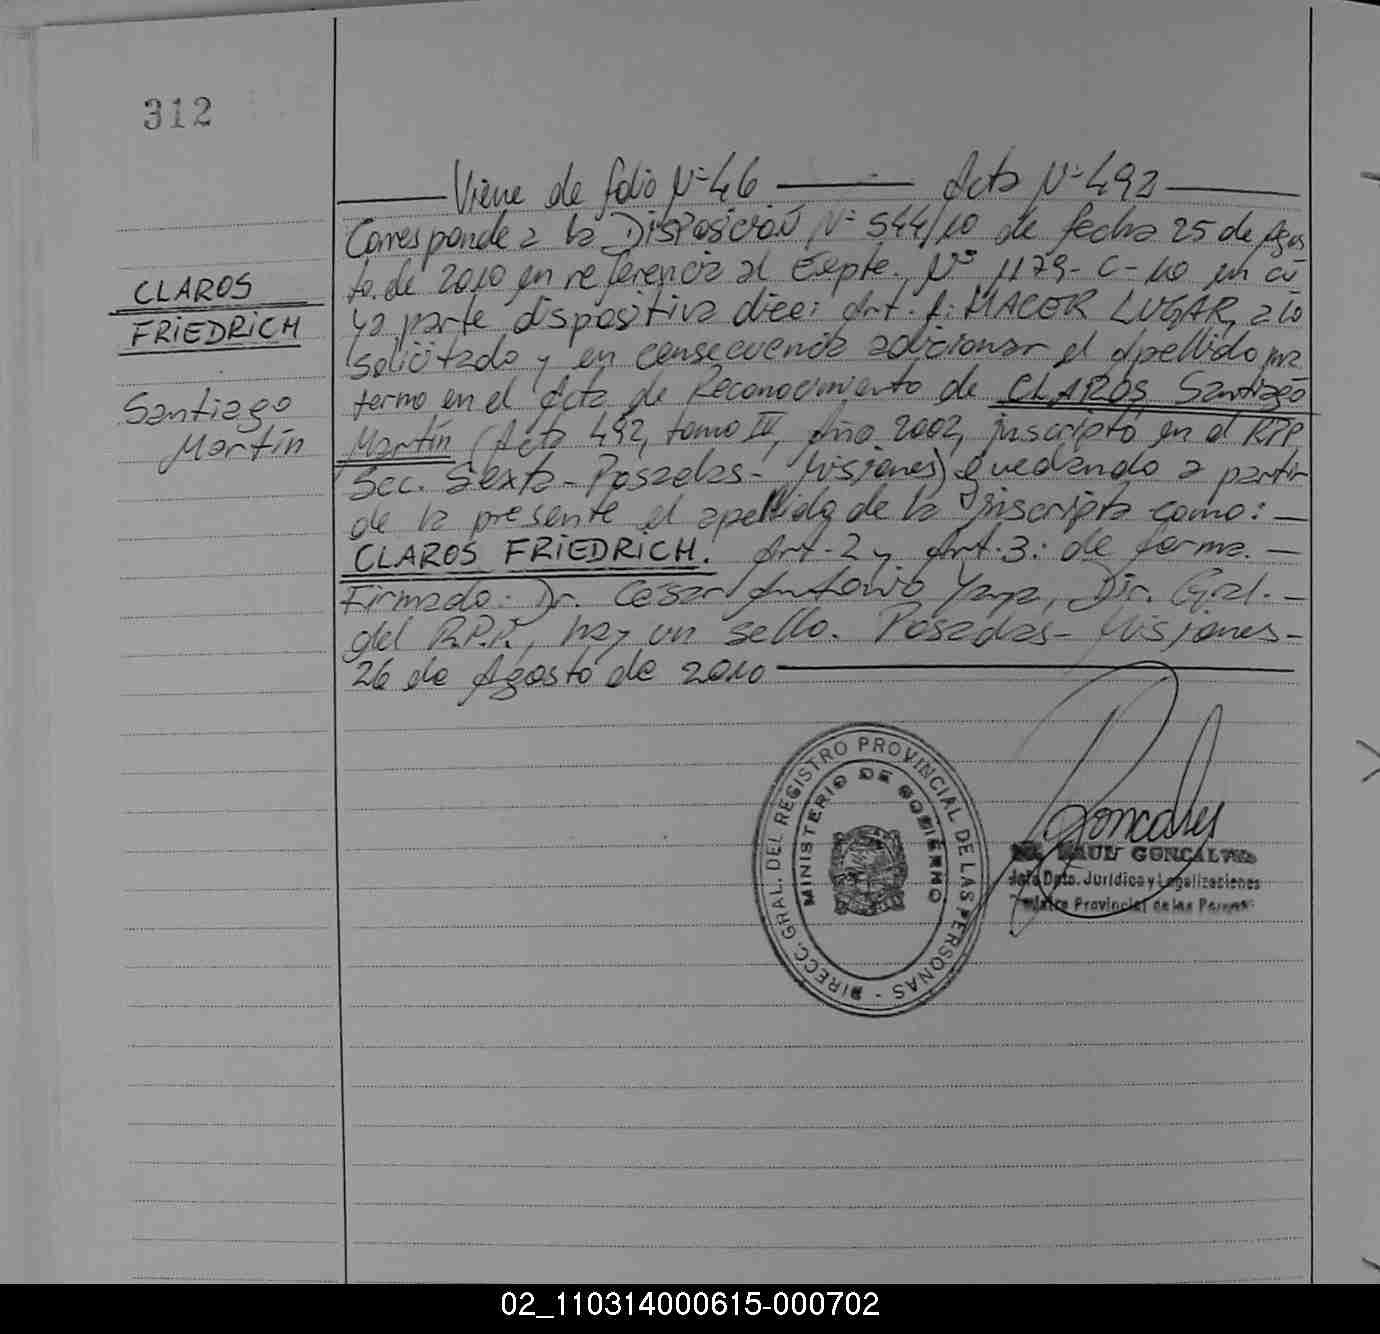 312
Viene de folio Nº 46 — Acta Nº 492
Corresponde a la Disposición Nº 544/10 de fecha 25 de Agos
to de 2010 en referencia al Expte. Nº 1179-C-10 en cu
ya parte dispositiva dice: Art. 1: HACER LUGAR, a lo
solicitado y en consecuencia adicionar el Apellido ma
terno en el Acta de Reconocimiento de CLAROS, Santiago
Martín (Acta 492, tomo IV, Año 2002, inscripto en el RPP
Sec. Sexta - Posadas - Misiones) quedando a partir
de la presente el apellido de la inscripta como: —
CLAROS FRIEDRICH. Art. 2 y Art. 3: de forma. —
Firmado: Dr. Cesar Antonio Yaya, Dir. Gral. —
del R.P.P., hay un sello. Posadas - Misiones -
26 de Agosto de 2010
CLAROS
FRIEDRICH
Santiago
Martín
DIRECC. GRAL. DEL REGISTRO PROVINCIAL DE LAS PERSONAS -
MINISTERIO DE GOBIERNO
Goncalves
RAUL GONCALVES
Jefe Dpto. Jurídico y Legalizaciones
Provincial de las Personas
02_110314000615-000702